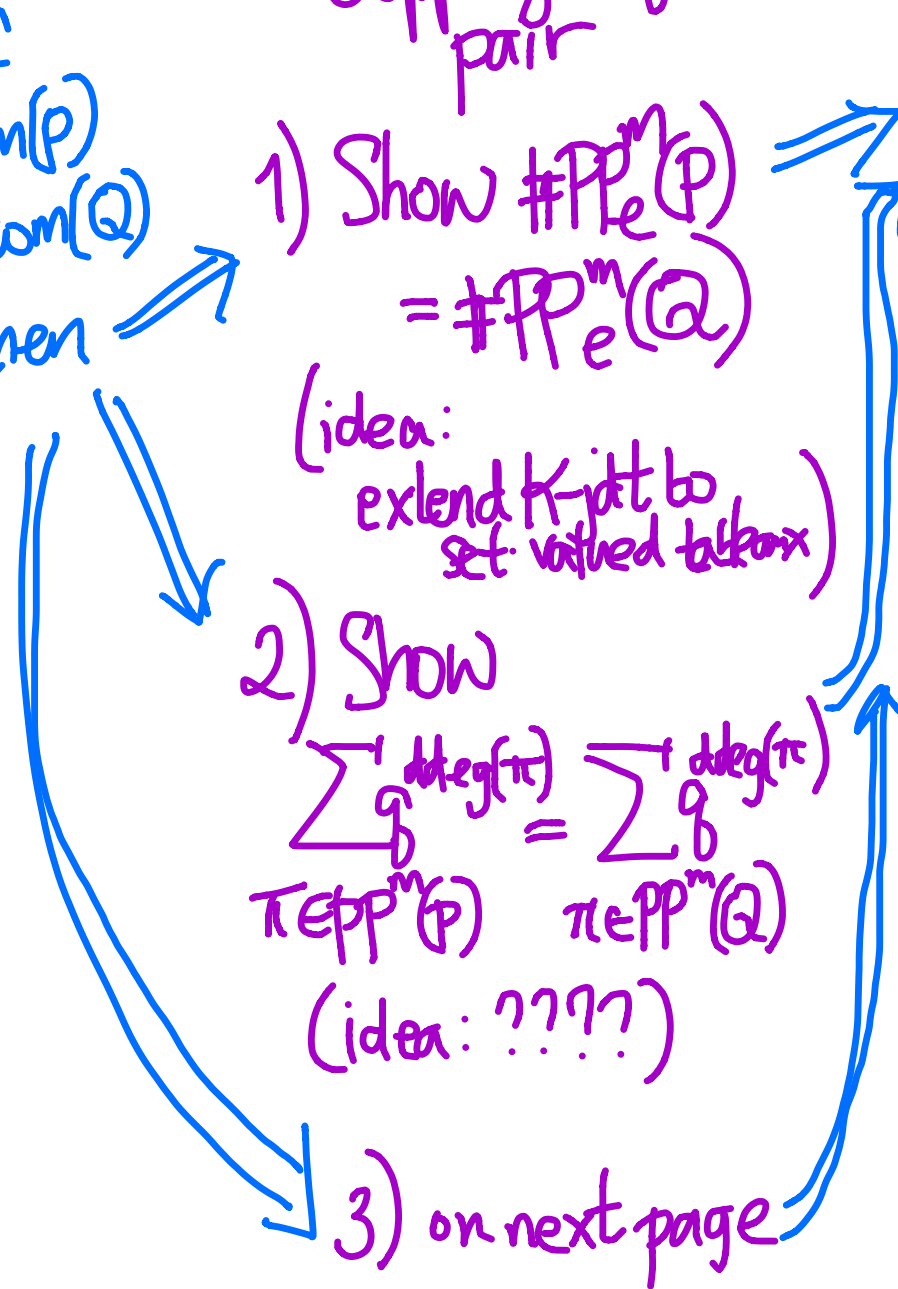 pair
m(P)
om(Q)
hen
1) Show #PP_e^m(P)
= #PP_e^m(Q)
(idea:
extend K-jdt to
set-valued tableaux)
2) Show
∑ q^{ddeg(π)} = ∑ q^{ddeg(π)}
π∈PP^m(P) π∈PP^m(Q)
(idea: ????)
3) on next page